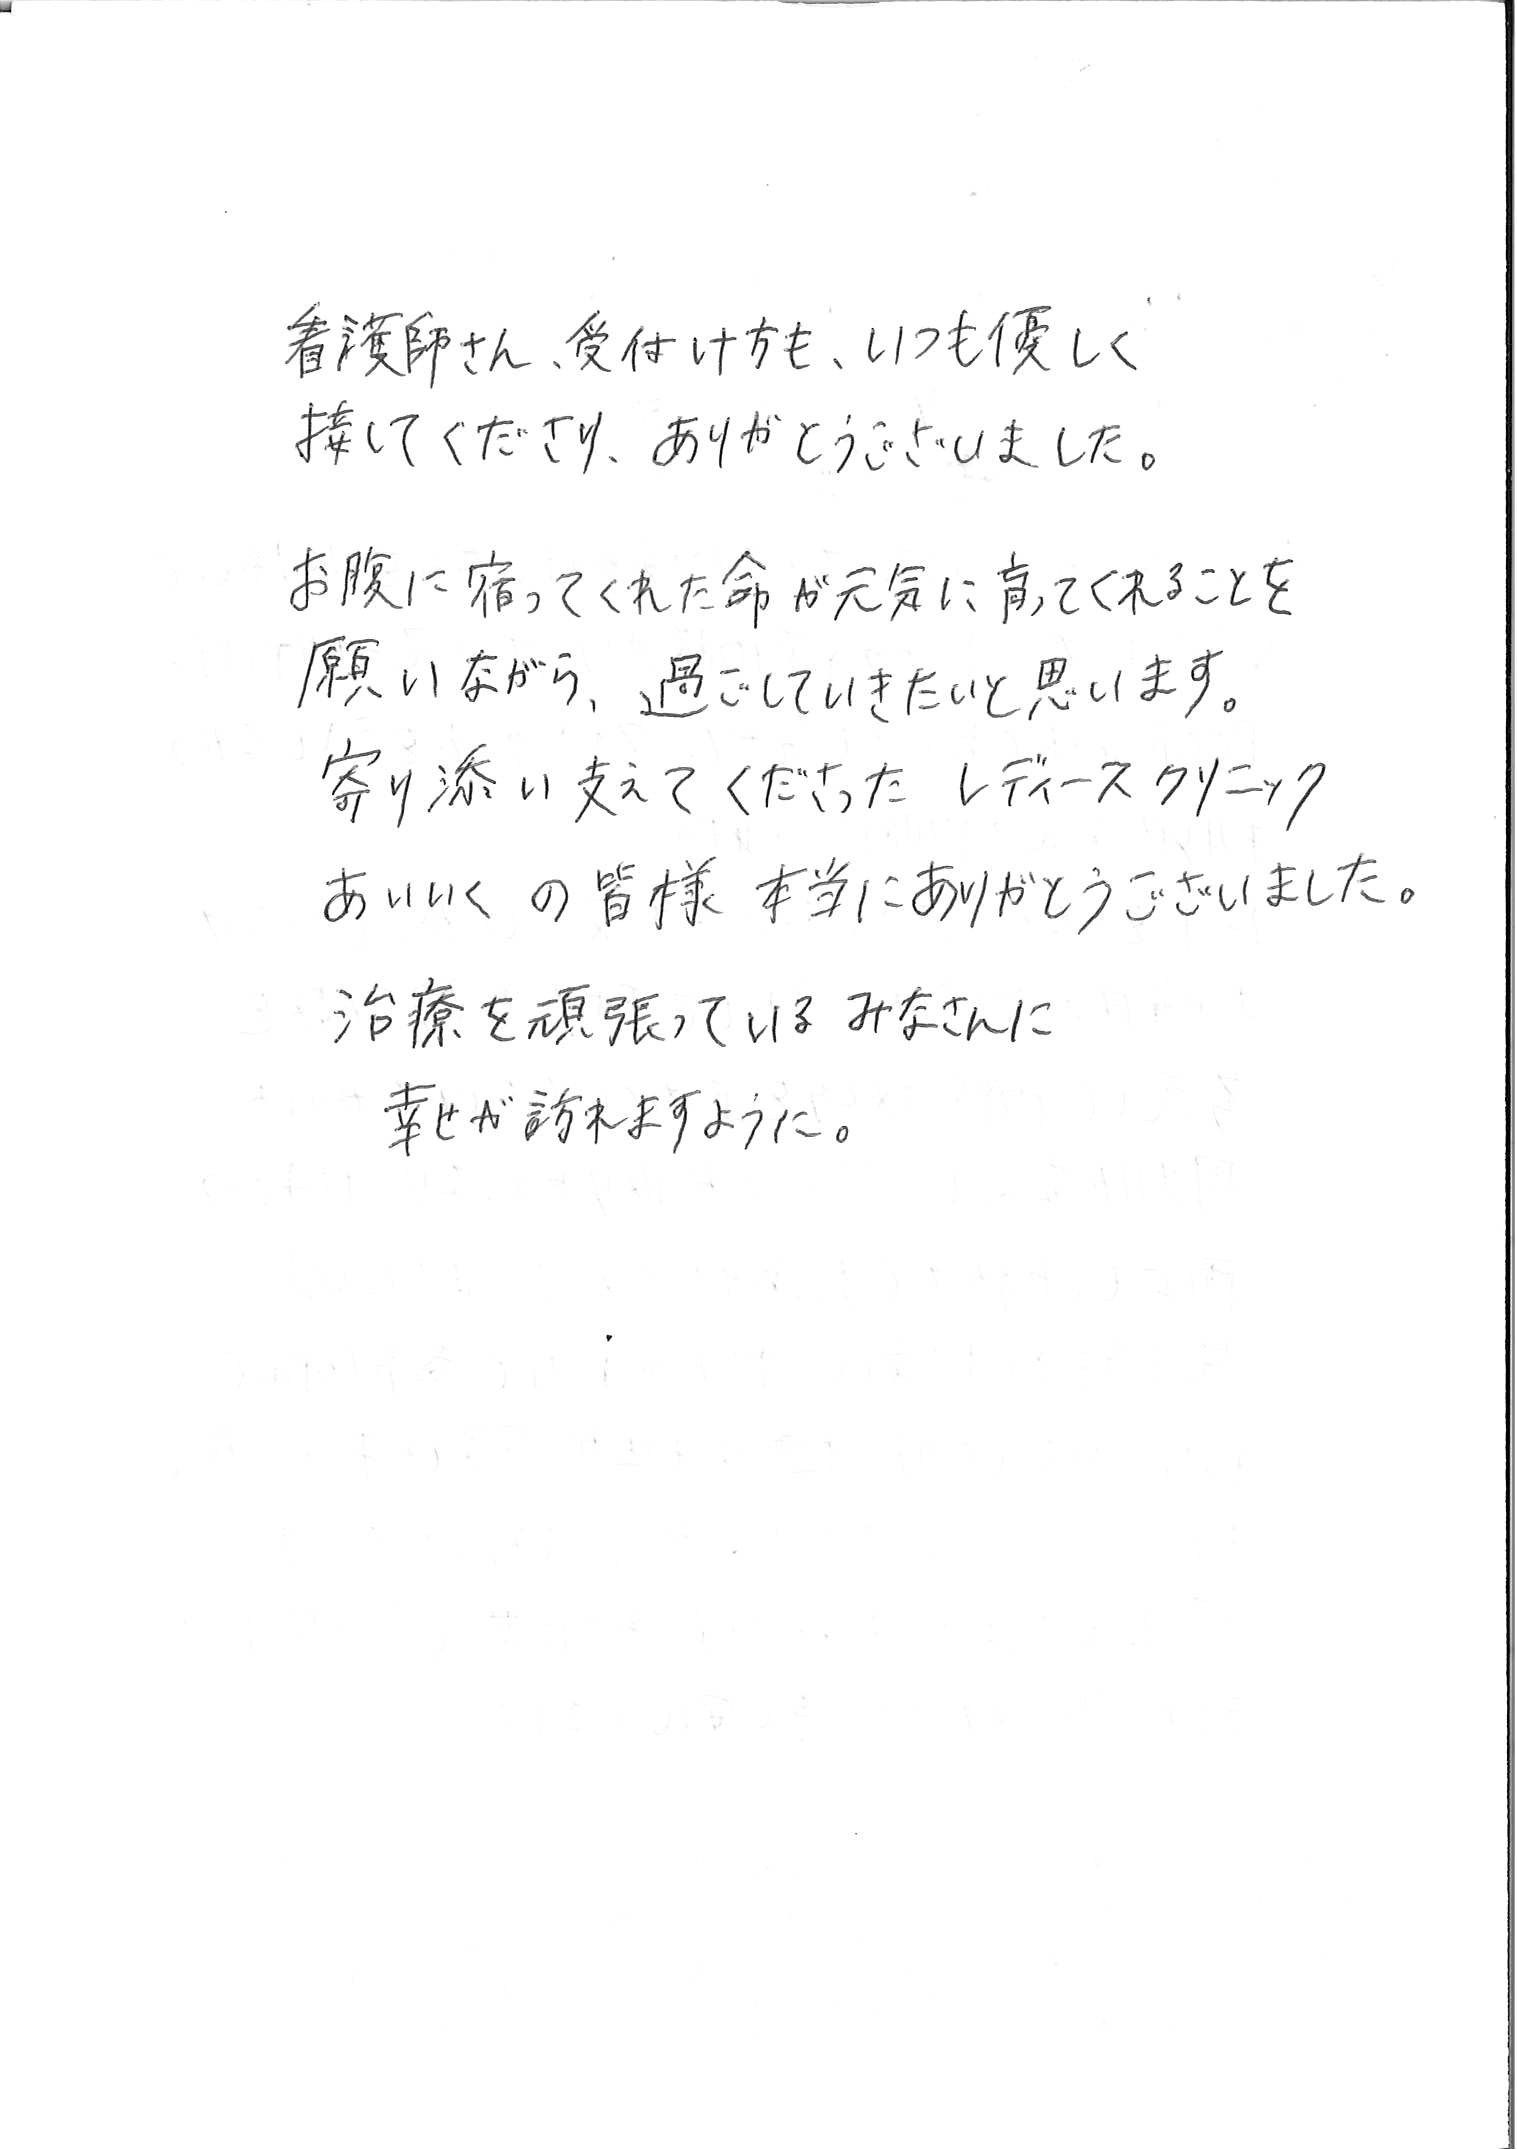 看護師さん、受付け方も、いつも優しく
接してくださり、ありがとうございました。
お腹に宿ってくれた命が元気に育ってくれることを
願いながら、過ごしていきたいと思います。
寄り添い支えてくださった レディースクリニック
あいいく の皆様 本当にありがとうございました。
治療を頑張っている みなさんに
幸せが訪れますように。